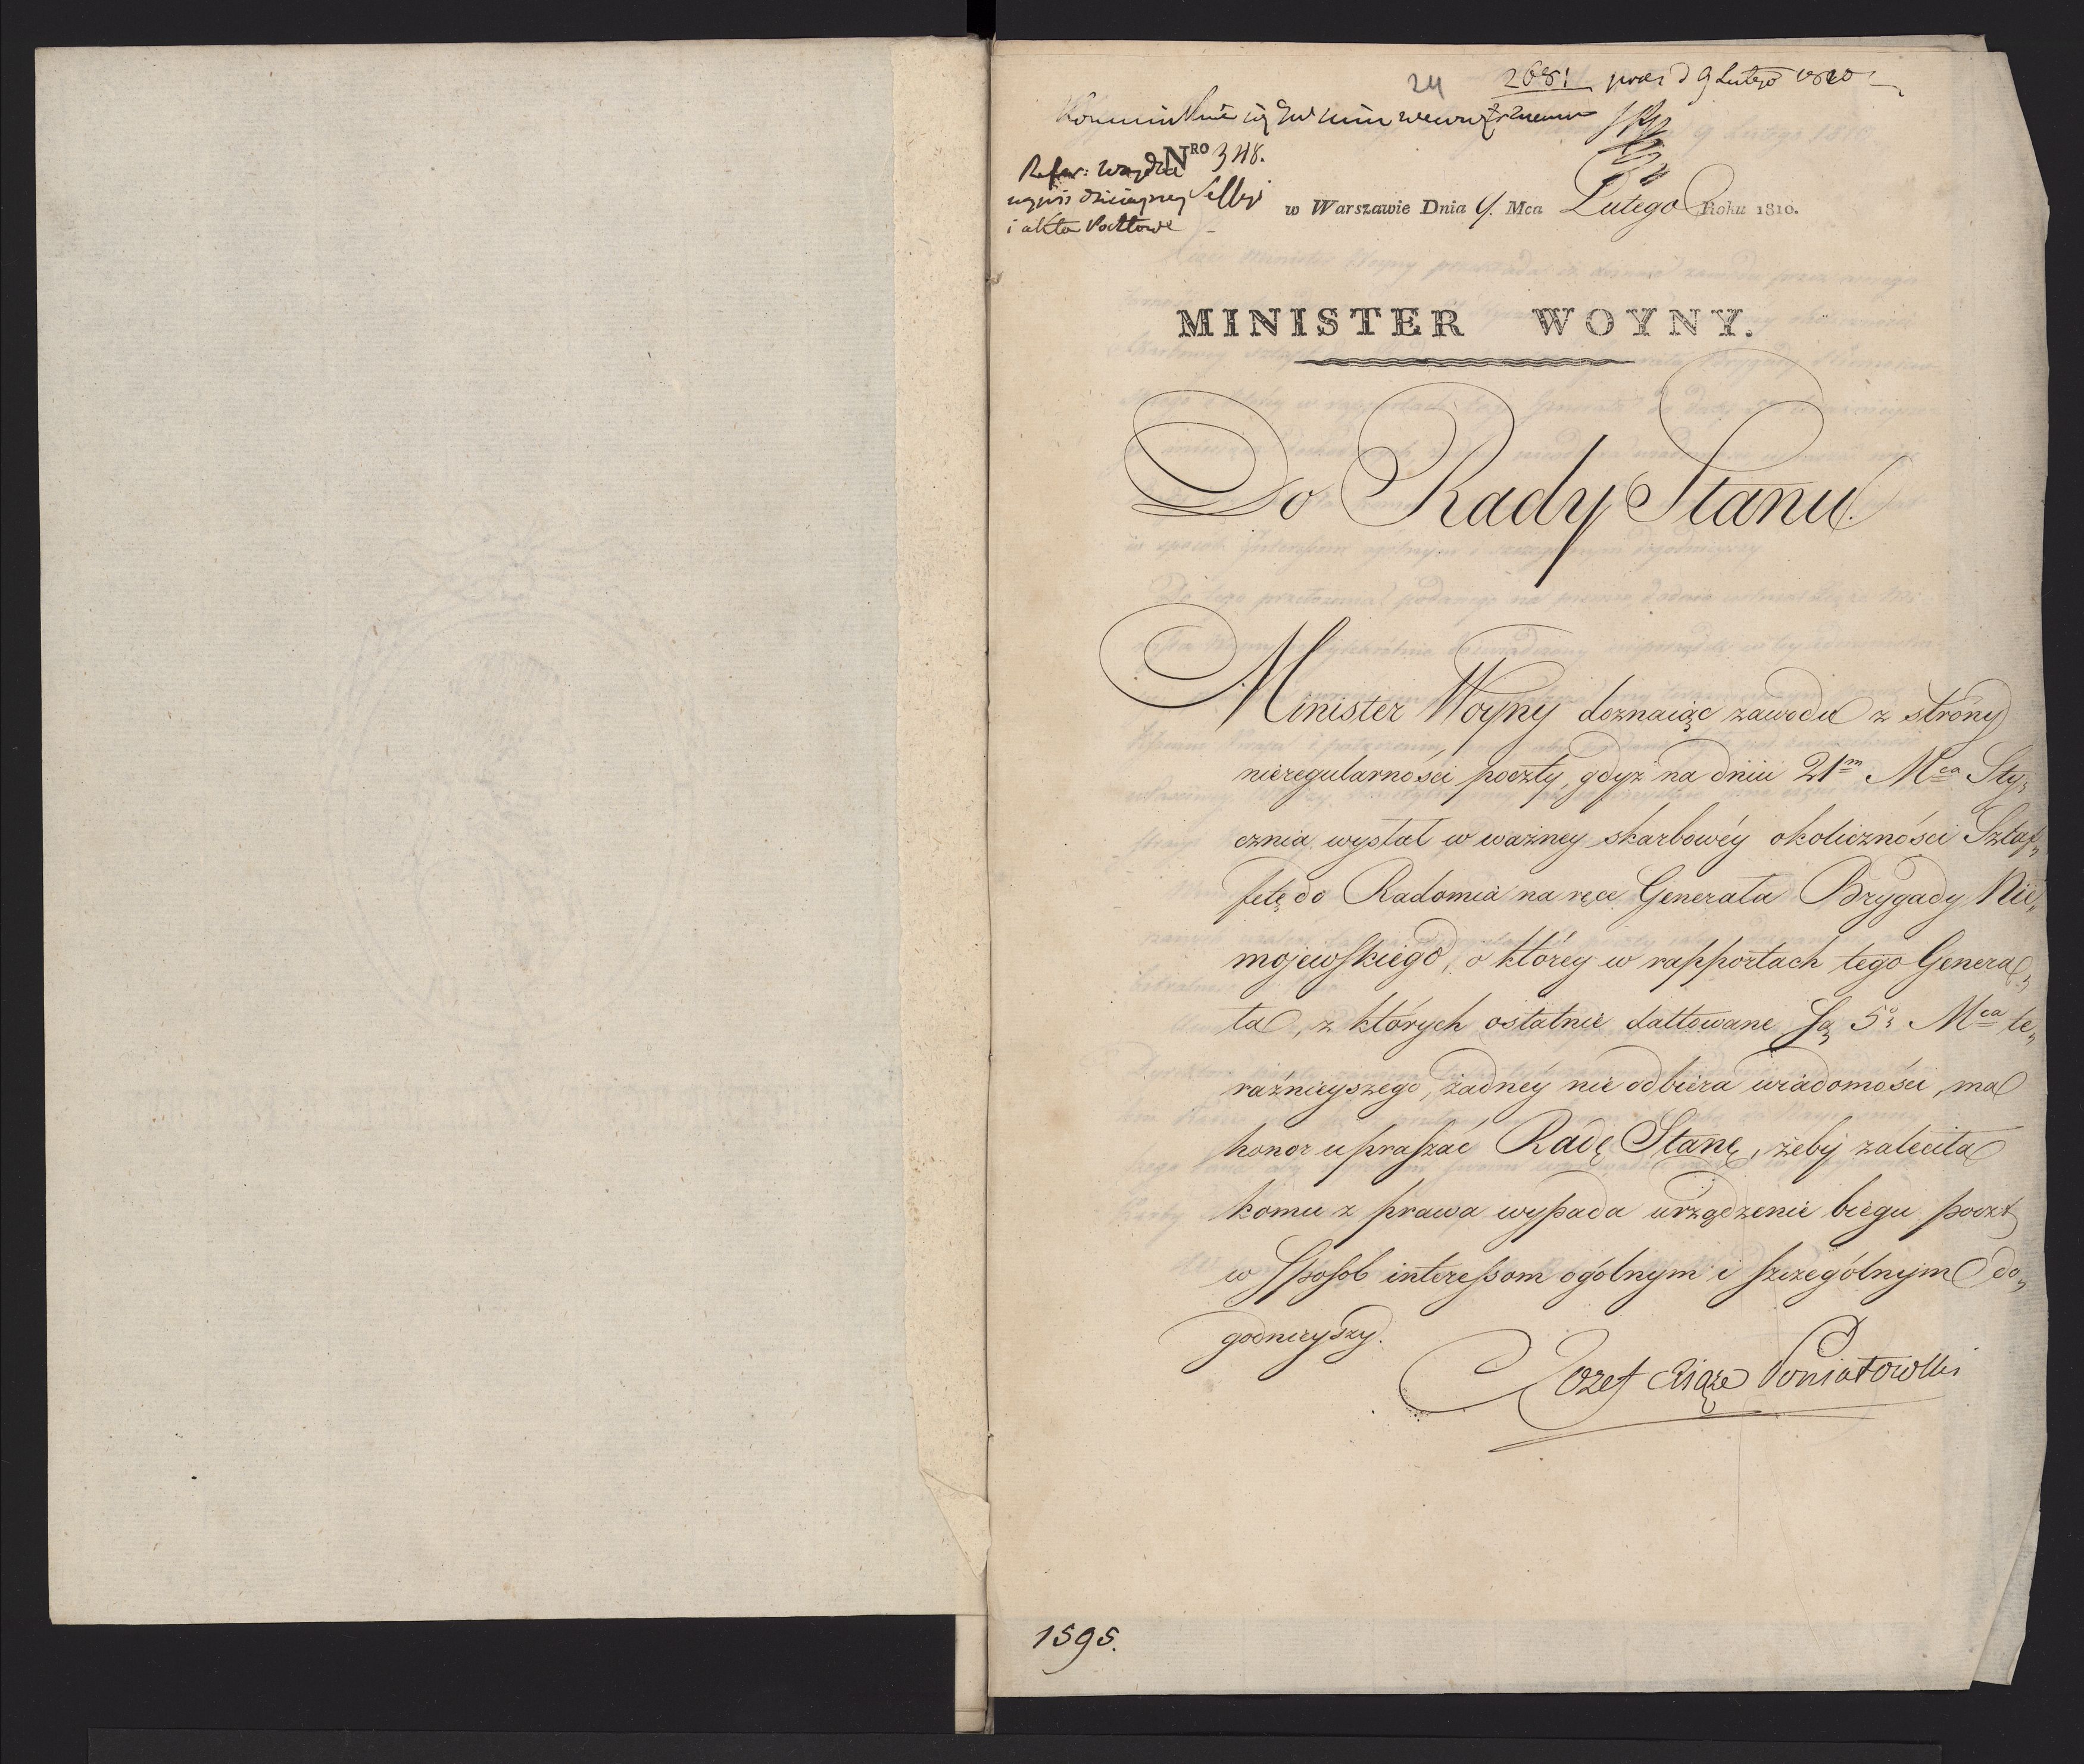 24 2681 prez d 9 Lutego 1810
NRO 348.
i akta Pocztowe
w Warszawie Dnia 9. Mca Lutego Roku 1810.
MINISTER WOYNY.
Do Rady Stanu.
Minister Woyny doznaiąc zawodu z strony
nieregularności poczty, gdyż na dniu 21m Mca Sty„
cznia wysłał w ważney skarbowéy okoliczności Sztaf„
fetę do Radomia na ręce Generała Brygady Nie„
mojewskiego, o którey w rapportach tego Genera„
ła, z których ostatnie dattowane są 5o Mca te„
raźnieyszego, żadney nie odbiera wiadomości, ma
honor upraszać Radę Stanę, żeby zaleciła
komu z prawa wypada urządzenie biegu poczt
w sposob interessom ogólnym i szczególnym do„
godnieyszy.
Jozef Xiąże Poniatowski
1595.